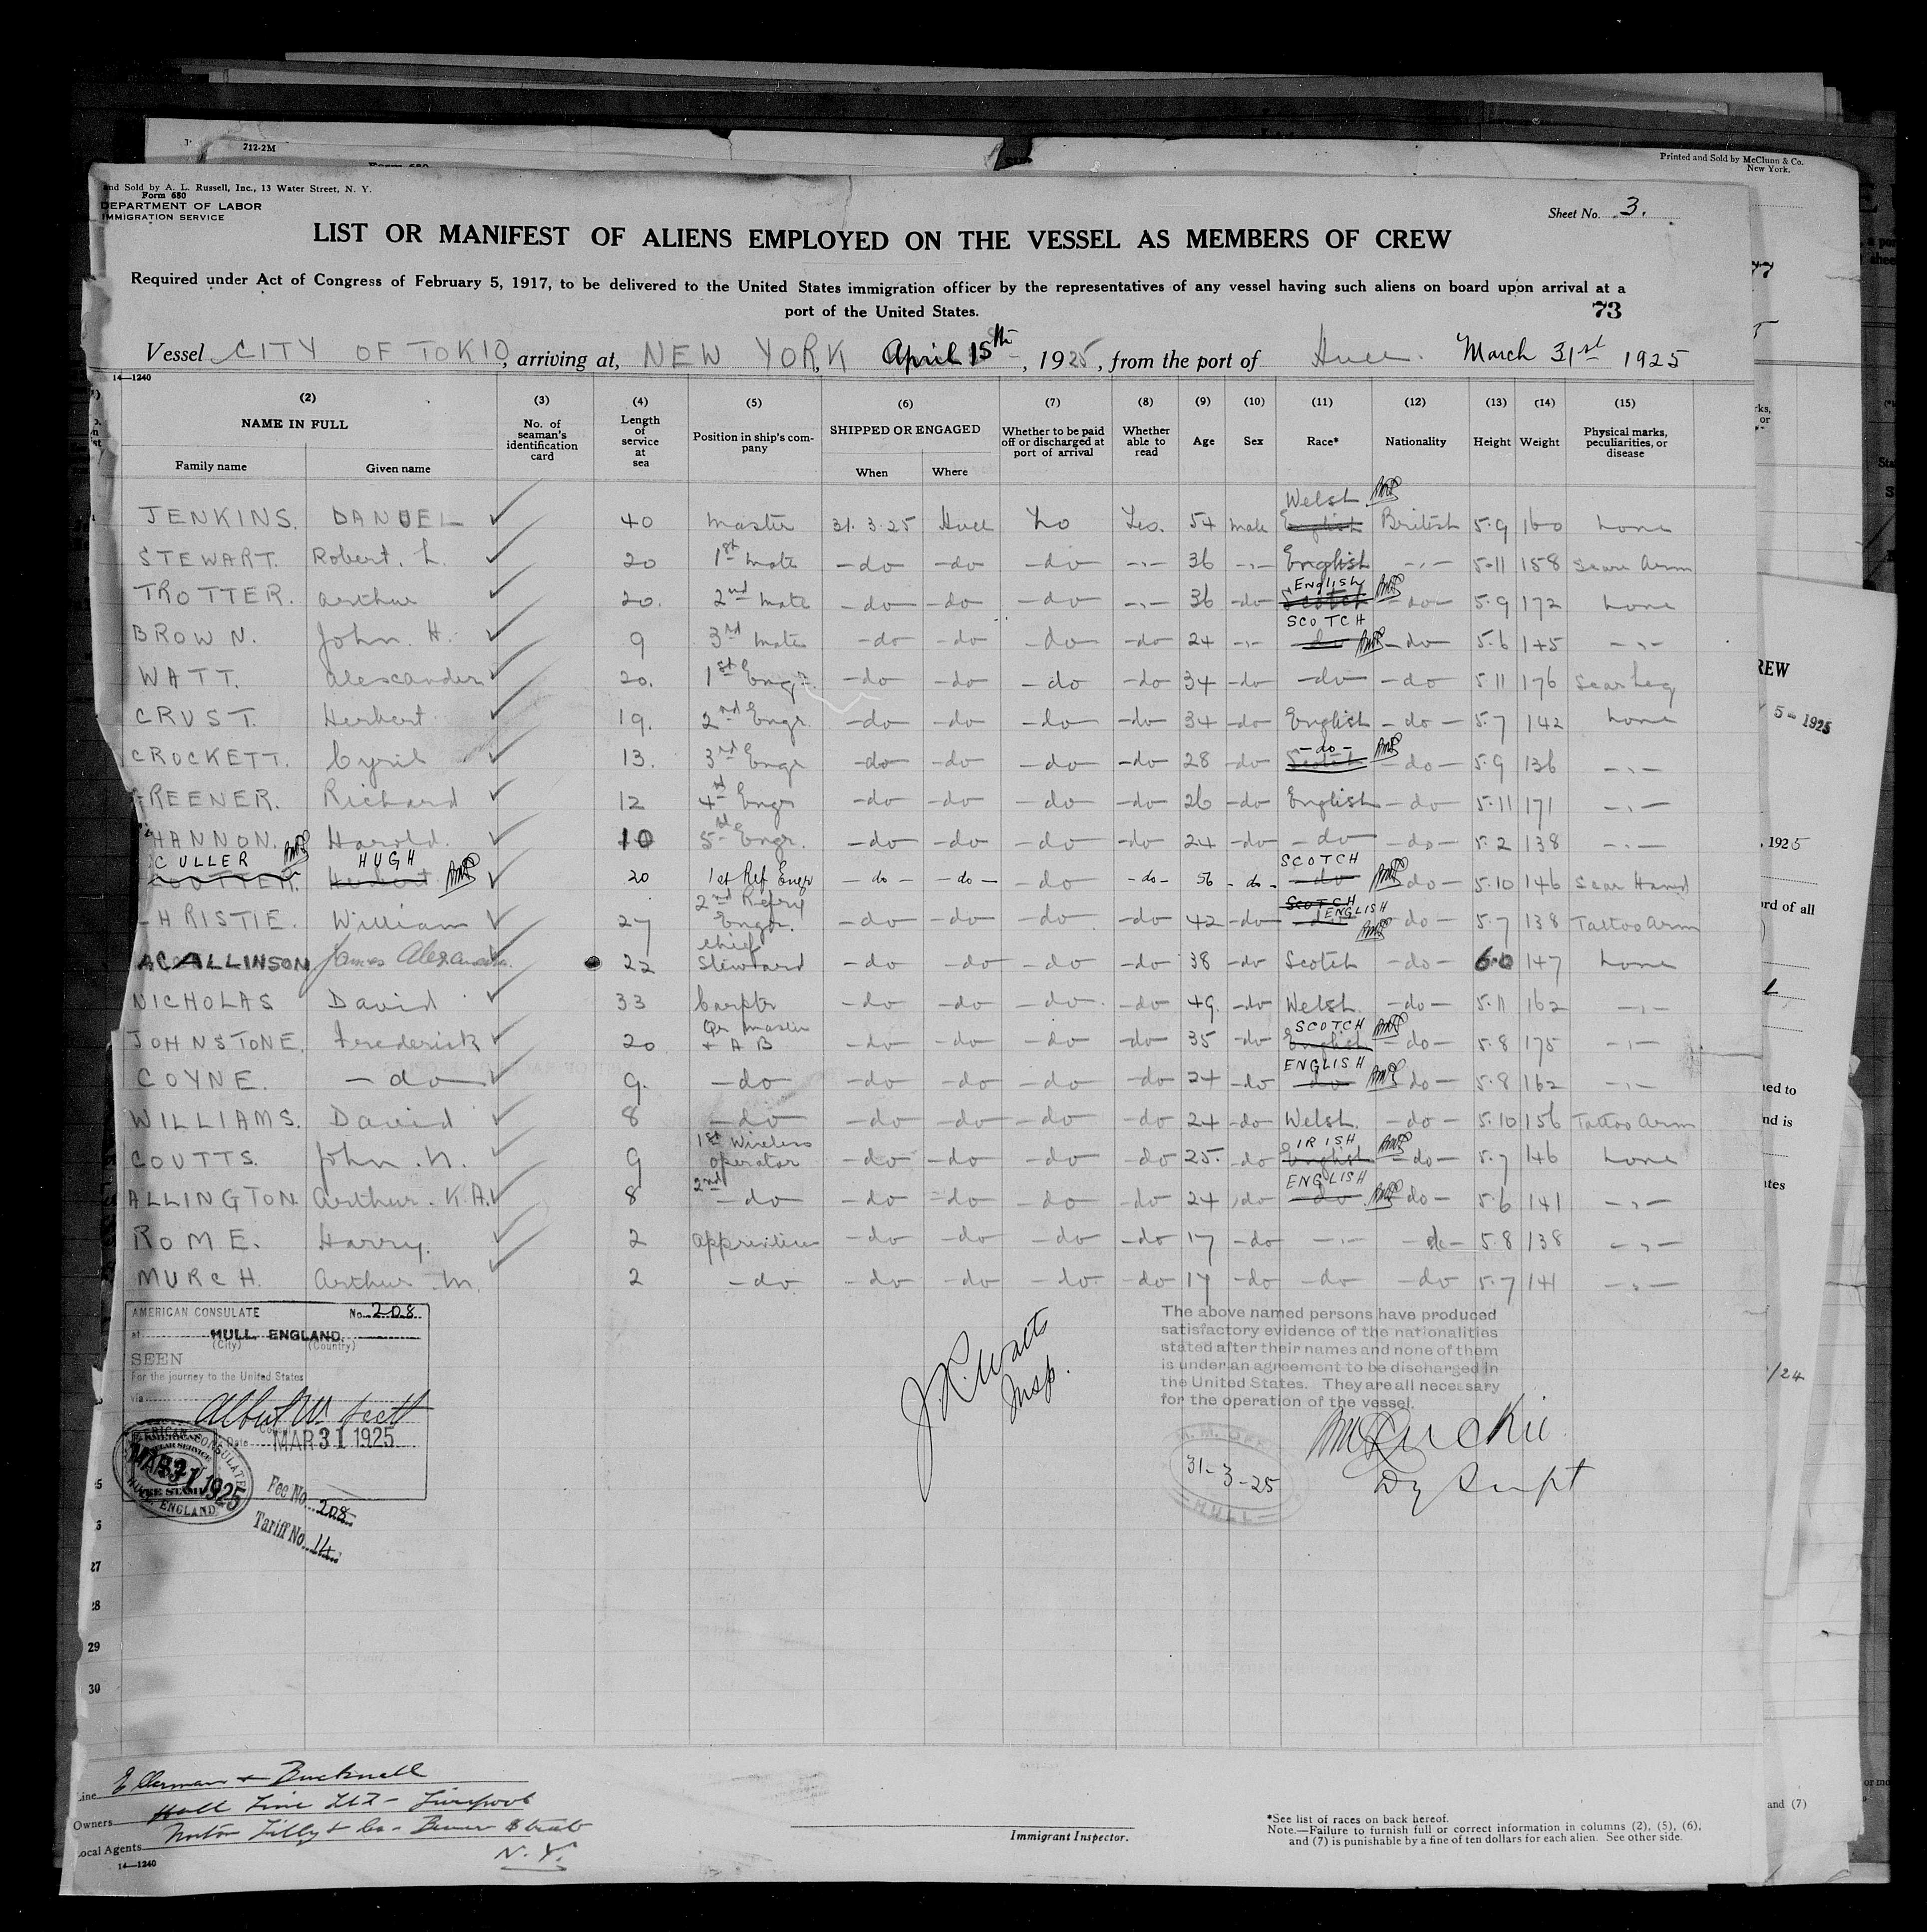 712-2M
Printed and Sold by McClunn & Co.
New York.
and Sold by A. L. Russell, Inc., 13 Water Street, N. Y.
Form 680
DEPARTMENT OF LABOR
IMMIGRATION SERVICE
Sheet No. 3.
LIST OR MANIFEST OF ALIENS EMPLOYED ON THE VESSEL AS MEMBERS OF CREW
Required under Act of Congress of February 5, 1917, to be delivered to the United States immigration officer by the representatives of any vessel having such aliens on board upon arrival at a
port of the United States.
73
Vessel CITY OF TOKIO, arriving at, NEW YORK, April 15th, 1925, from the port of Hull. March 31st 1925
14—1240
(2) (3) (4) (5) (6) (7) (8) (9) (10) (11) (12) (13) (14) (15)
NAME IN FULL No. of seaman's identification card Length of service at sea Position in ship's company SHIPPED OR ENGAGED Whether to be paid off or discharged at port of arrival Whether able to read Age Sex Race* Nationality Height Weight Physical marks, peculiarities, or disease
Family name Given name When Where
JENKINS. DANUEL 40 Master 31.3.25 Hull No Yes. 54 male English Welsh British 5.9 160 None
STEWART. Robert. L. 20 1st Mate -do- -do -do- -"- 36 -"- English -"- 5.11 158 Scar Arm
TROTTER. Arthur 20. 2nd Mate -do- -do- -do- -"- 36 -do Scotch ENGLISH -do- 5.9 172 None
BROWN. John. H. 9 3rd Mate -do -do -do- -do 24 -"- -do- SCOTCH -do- 5.6 145 -"-
WATT. Alexander 20. 1st Engr. -do- -do- -do -do- 34 -do -do- -do 5.11 176 Scar Leg
CRUST. Herbert 19. 2nd Engr. -do- -do- -do- -do- 34 -do English -do- 5.7 142 None
CROCKETT. Cyril 13. 3rd Engr -do- -do -do- -do 28 -do Scotch -do- -do- 5.9 136 -"-
REENER. Richard 12 4th Engr -do- -do- -do- -do 26 -do English -do- 5.11 171 -"-
HANNON. Harold. 10 5th Engr. -do- -do- -do- -do 24 -do -do- -do- 5.2 138 -"-
CULLER HUGH Herbert 20 1st Ref Engr -do- -do- -do -do- 56 -do- -do- SCOTCH -do- 5.10 146 Scar Hand
HRISTIE. William 27 2nd Refrig Engr. -do- -do- -do- -do- 42 -do- SCOTCH -do- ENGLISH -do- 5.7 138 Tattoo Arm
ALLINSON James Alexander. 22 Chief Steward -do- -do- -do- -do 38 -do Scotch -do- 6.0 147 None
NICHOLAS David 33 Carptr -do- -do- -do- -do 49. -do Welsh. -do- 5.11 162 -"-
JOHNSTONE Frederick 20 Qr Master + A B -do- -do- -do- -do 35 -do English SCOTCH -do- 5.8 175 -"-
COYNE. -do- 9. -do- -do- -do- -do- -do 24 -do -do- ENGLISH -do- 5.8 162 -"-
WILLIAMS. David 8 -do- -do- -do- -do- -do 24 -do Welsh. -do- 5.10 156 Tattoo Arm
COUTTS. John. N. 9 1st Wireless operator -do- -do- -do- -do 25. -do English IRISH -do- 5.7 146 None
ALLINGTON. Arthur. K.A. 8 2nd -do- -do- -do- -do- -do 24 -do -do- ENGLISH -do- 5.6 141 -"-
ROME. Harry. 2 apprentice -do- -do- -do- -do 17 -do -"- -do- 5.8 138 -"-
MURCH. Arthur M. 2 -do- -do- -do- -do- -do 17 -do -do- -do 5.7 141 -"-
AMERICAN CONSULATE No. 208
at HULL, ENGLAND.
(City) (Country)
SEEN
For the journey to the United States
via
Date MAR 31 1925
Fee No. 208.
Tariff No. 14.
J.R. Watts
Insp.
The above named persons have produced
satisfactory evidence of the nationalities
stated after their names and none of them
is under an agreement to be discharged in
the United States. They are all necessary
for the operation of the vessel.
M. M. OFF
31-3-25
HULL
Dy Supt
27
28
29
30
Line Ellerman + Bucknall
Owners Hall Line Ltd - Liverpool
Local Agents Norton Lilly & Co - Beaver Street
N.Y.
14—1240
Immigrant Inspector.
*See list of races on back hereof.
Note.—Failure to furnish full or correct information in columns (2), (5), (6),
and (7) is punishable by a fine of ten dollars for each alien. See other side.
REW
5- 1925
, 1925
rd of all
ned to
nd is
ates
/24
and (7)